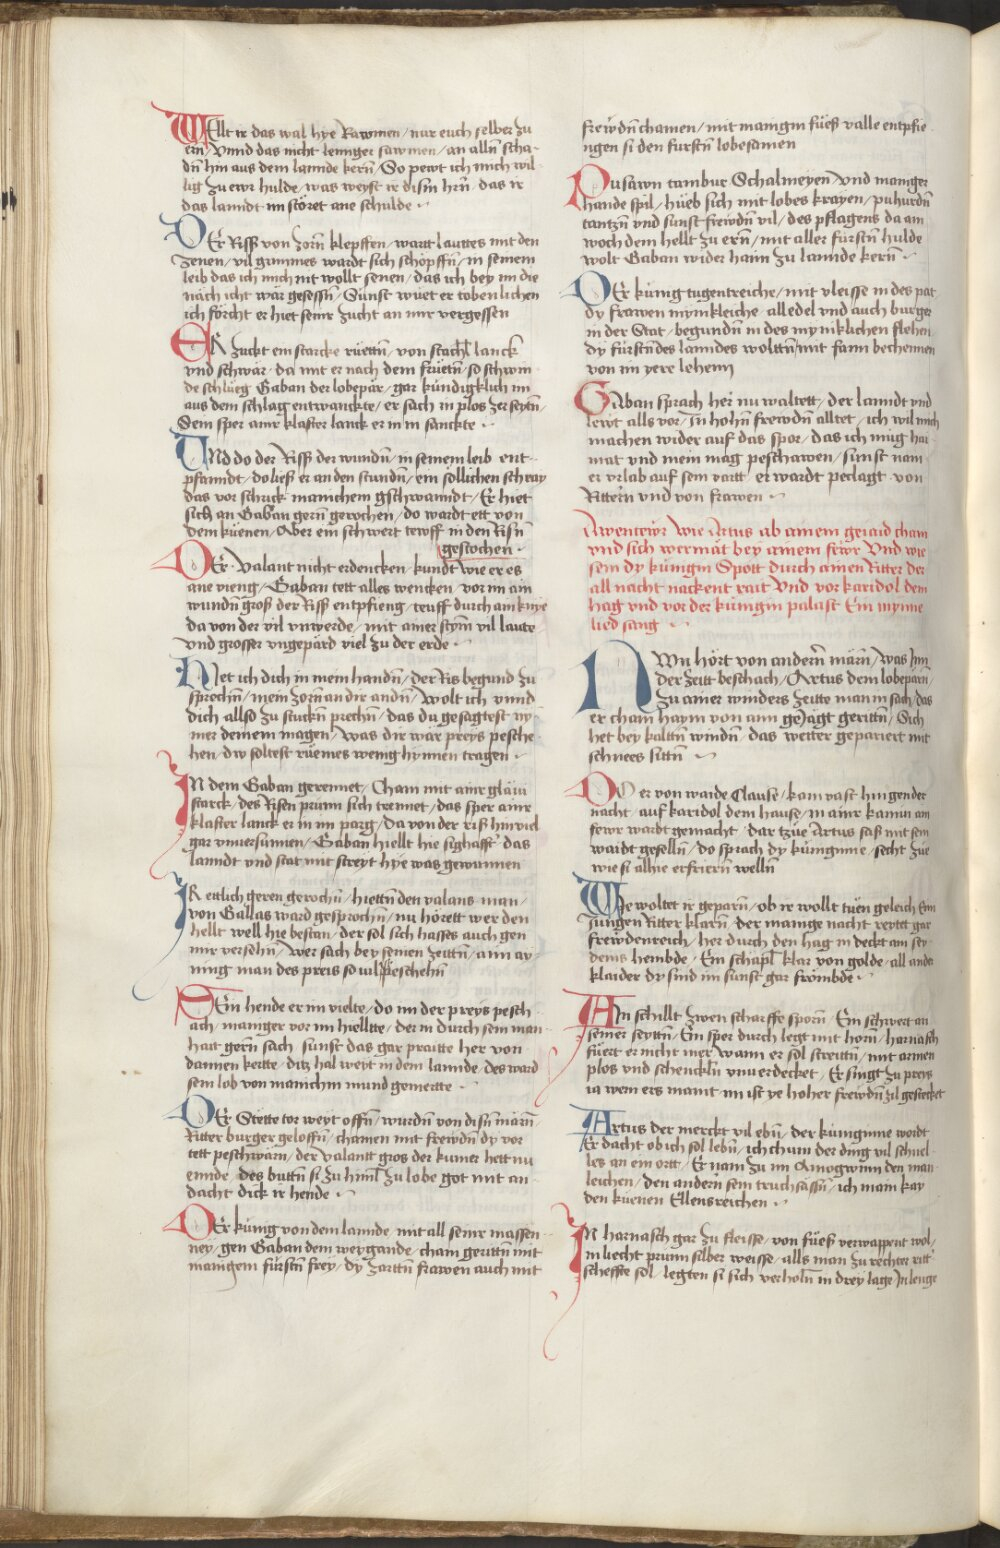 WEllt ir das wal hye Rawmen / nur euch selber zu
ern / Vnnd das nicht lennger sawmen / an alln scha-
dn hin aus dem lannde kern / So pewt ich mich wil-
lig zu ewr hulde / was weyst ir disn hrn / das ir
das lanndt im störet ane schulde
DEr Riss von zorn klepffen / wartt lauttes mit den
zenen / vil grimmes wardt sich schöpffn / in seinem
leib das ich mich nit wollt senen / das ich bey im die
nach icht wär gesessn / Sunst wüet er tobenlichen
ich förcht er hiet seinr zucht an mir vergessen
ER zuckt ein starcke rüettn / von stachl lanck
vnd schwär / da mit er nach dem früetn / so schwin
de schlueg Gaban der lobepär / gar kündigklich im
aus dem schlag entwanckte / er sach in plos zer seytn /
Sein sper ainr klaffter lanck er in in sanckte
VNd do der Riss der wundn / in seinem leib ent-
pfanndt / do liess er an den stundn / ein söllichen schray
das vor schrick manichem gschwanndt / Er hiet
sich an Gaban gern gerochen / do wardt ett von
dem küenen / Aber ein schwert tewff in den Risn
gestochen
DEr Valant nicht erdencken / kundt wie er es
ane vieng / Gaban tett alles wencken / vor im ain
wundn gros der Riss entpfieng / teuff durch ain knye
da von der vil vnwerde / mit ainer stym vil laute
vnd grosser vngepärd viel zu der erde
HEt ich dich in mein handn / der Ris begund zu
sprechn / mein zorn an dir andn / Wolt ich vnnd
dich allso zu stuckn prechn / das du gesagtest ny-
mer deinem magen / Was dir war preys pesche-
hen / dw soltest rüemes wenig hynnen tragen
IN dem Gaban gerennet / Cham mit ainr gläui
starck / des Risen prünn sich trennet / das sper ainr
klaffter lanck er in im parg / da von der riss hin viel
gar vnuersunnen / Gaban hiellt hie sighafft das
lanndt vnd stat mit streyt hye was gewunnen
IR ettlich geren gerochn / hiettn den valans man /
von Gallas ward gesprochn / nu hörett wer den
hellt well hie bestan / der sol sich hasses auch gen
mir versehn / Wer sach bey seinen zeittn / ainn ay-
nnig man des preis so vil peschehn
SEin hende er im vielte / do im der preys pesch
ach / maniger vor im hiellte / der in durch sein man
hait gern sach / sunst das gar praitte her von
dannen kertte / ditz hal weyt in dem lannde / des ward
sein lob von manichm mund gemertte
DEr Stette tor weyt offn / wurdn von disn märn
Ritter burger geloffn / chamen mit frewdn dy vor
tett peschwärn / der valantt gros der kumer hett nu
ennde / des buttn si zu himl zu lobe got mit an-
dacht dick ir hende
DEr künig von dem lannde mit all seinr massen-
ney / gen Gaban dem weygande / cham gerittn mit
manigem fürstn frey / dy zarttn frawen auch mit
frewdn chamen / mit manigm füess valle entpfie-
ngen si den furstn lobesamen
PUsawn tambur Schalmeyen vnd maniger
hande spil / hüeb sich mit lobes krayen / puhurdn
tantzn vnd sunst frewdn vil / des pflagens da ain
woch dem hellt zu ern / mit aller fürstn hulde
wolt Gaban wider haim zu lannde kern
DEr künig tugentreiche / mit vleisse in des pat
dy frawen mynikleiche / all edel vnd auch burger
in der Stat / begundn in des myniklichen flehen
dy fürstn des lanndes wolttn / mit fann bechennen
von im yere lehenn
GAban sprach her nu waltett / der lanndt vnd
lewt alls vor / Jn hohn frewdn alltet / ich wil mich
machen wider auf das spor / das ich müg hai-
mat vnd mein mag peschawen / sunst nam
er vrlab auf sein vartt er wardt peclagt von
Rittern vnd von frawen
Awentewr Wie Artus ab ainem geiaid cham
vnd sich wermät bey ainem fewr Vnd wie
sein dy künigin Spott durch ainen Ritter der
all nacht nackent rait Vnd vor karidol dem
hag vnd vor der künigin palast Ein mynne
lied sang
NWn hört von andern märn / Was Jnn
der zeitt beschach / Artus dem lobeparn /
zu ainer winders zeitte man in sach / das
er cham haym von ainn gejägt gerittn / Sich
het bey kalttn windn / das wetter gepariert mit
schnees sittn
DO er von waide Clause / kam vast hin gen der
nacht / auf karidol dem hause / in ainr kamin ain
fewr wardt gemacht / dar tzüe Artus sass mit sein
waidt geselln / do sprach dy künginne / secht zue
wie si alhie erfriern welln
WIe woltet ir geparn / ob ir wollt tüen geleich Ein
Jungen Ritter klarn / der manige nacht reyttt gar
frewdenreich / her durch den hag in deckt am sey-
deins hembde / Ein schapl klar von golde / all ander
klaider dy sind im sunst gar frömbde
AIn schillt zwen scharffe sporn / Ein schwert an
seiner seyttn / Ein sper durch legt mit horn / harnasch
füert er nicht mer Wann er sol streittn / mit armen
plos vnd schenckln vnuerdecket / Er singt zu preys
ia wem ers maint im ist ye hoher frewdn zil gestecket
ARtus der merckt vil ebn / der künginne wordt
Er dacht ob ich sol lebn / ich chum der ding vil schiel-
les an ein ortt / Er nam zu im Amogwinn den man-
leichen / den andern sein truchsässn / ich main kay
den küenen Ellensreichen
IN harnasch gar zu fleisse / von füess verwappent wol /
in liecht prunn silber weisse / alls man zu rechter ritt
scheffte sol / legten si sich verholn in drey lage Jn lenge